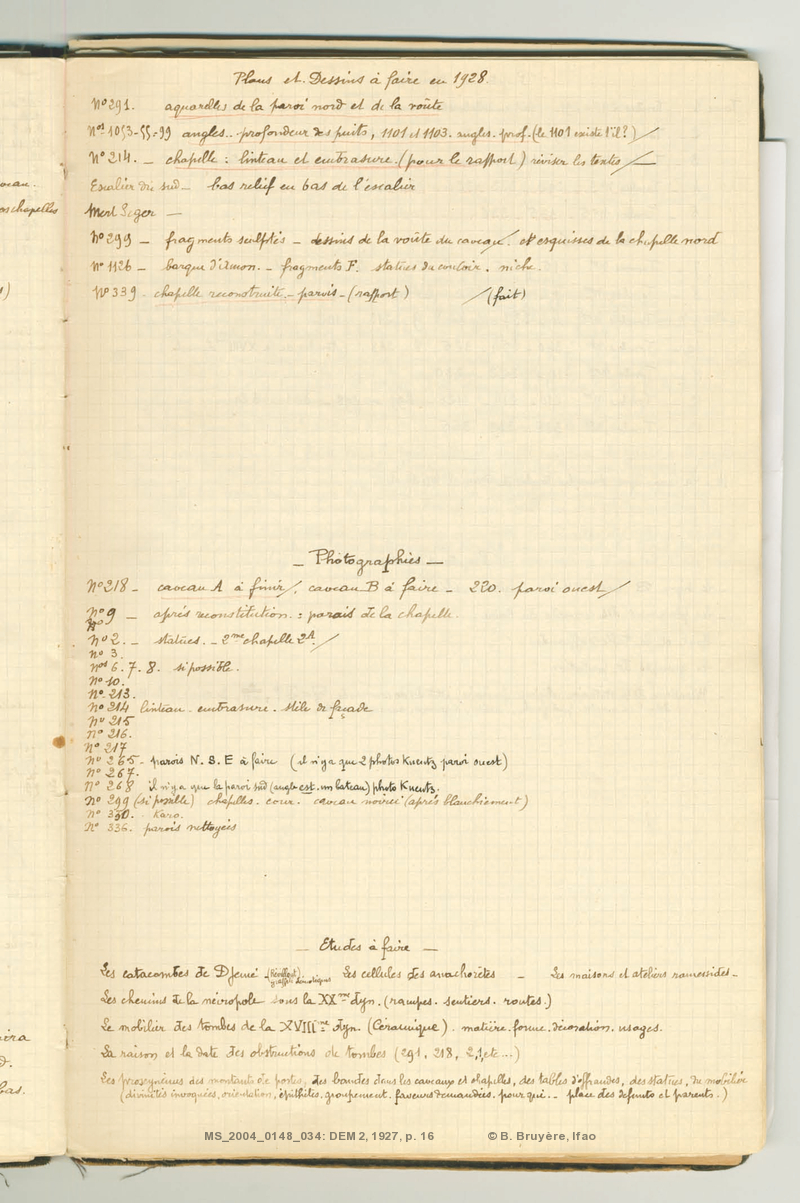 Plans et Dessins à faire en 1928.
N° 291. aquarelles de la paroi nord et de la voûte
Nos 1053-55-99 angles.. profondeur des puits, 1101 et 1103. angles. prof. (le 1101 existe t'il?) /
N° 214. — chapelle : linteau et embrasure. (pour le rapport) réviser les textes /—
Escalier du sud — bas relief en bas de l'escalier
Mert Seger —
N° 299 — fragments sculptés — dessins de la voûte du caveau /. et esquisses de la chapelle nord
N° 1126 — barque d'Amon. — fragments F. statues du couloir. niche.
N° 339 - chapelle reconstruite. - parvis - (rapport) / (fait)
— Photographies —
N° 218 - caveau A à finir /. caveau B à faire — 220. paroi ouest /
N° 9 — après reconstitution. : parois de la chapelle.
N°
N° 2. — statues. - 2me chapelle 2A. /
N° 3.
Nos 6. 7. 8. si possible.
N° 10.
N° 213.
N° 214 linteau. embrasure. stèle de façade
N° 215
N° 216.
N° 217
N° 265 - parois N. S. E à faire (il n'y a que 2 photos Kuentz paroi ouest)
N° 267.
N° 268 il n'y a que la paroi sud (angle est. un bateau) photo Kuentz.
N° 299 (si possible) chapelles. cour. caveau noirci (après blanchiement)
N° 330. Karo.
N° 336. parois nettoyées
— Etudes à faire —
Les catacombes de Djemé (Révillout). graffiti démotiques Les cellules des anachorètes — Les maisons et ateliers ramessides —
Les chemins de la nécropole sous la XXme dyn. (rampes. sentiers. routes.)
Le mobilier des tombes de la XVIIIme dyn. (Céramique). matière. forme. décoration. usages.
La raison et la date des obstructions de tombes (291, 218, 2, 1, etc...)
Les proscynèmes des montants de portes, des bandes dans les caveaux et chapelles, des tables d'offrandes, des statues, du mobilier
(divinités invoquées, orientation, épithètes, groupement. faveurs demandées. pour qui. — place des défunts et parents.)
eau.
os chapelles
)
éra
d.
bas.
MS_2004_0148_034: DEM 2, 1927, p. 16 © B. Bruyère, Ifao